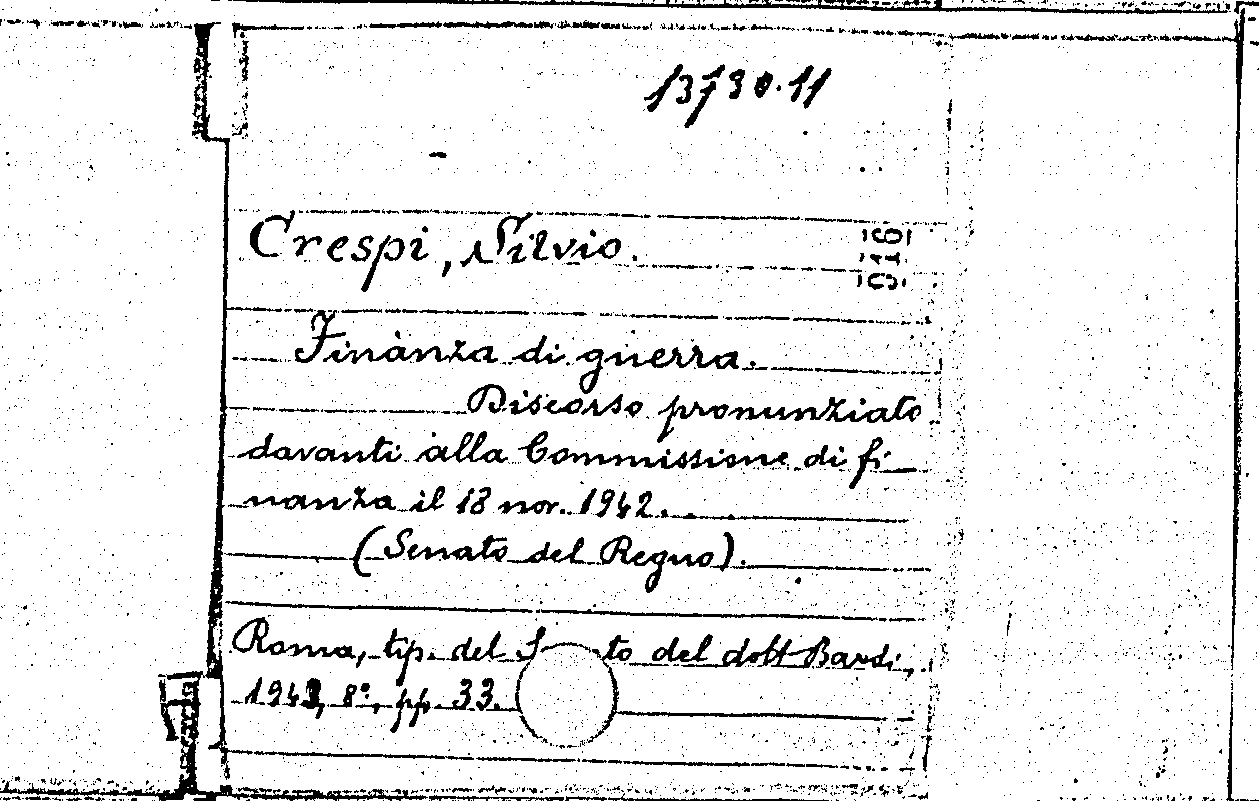 13730.11
Crespi, Silvio.
Finanza di guerra.
Discorso pronunziato
davanti alla Commissione di fi-
nanza il 18 nov. 1942.
(Senato del Regno).
Roma, tip. del to del dott Bardi,
8°, pp. 33.